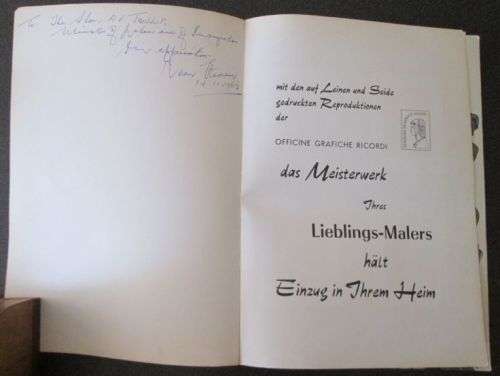 To The Hon
Minister of
in appreciation
mit den auf Leinen und Seide
gedruckten Reproduktionen
der
OFFICINE GRAFICHE RICORDI
das Meisterwerk
Ihres
Lieblings-Malers
hält
Einzug in Ihrem Heim